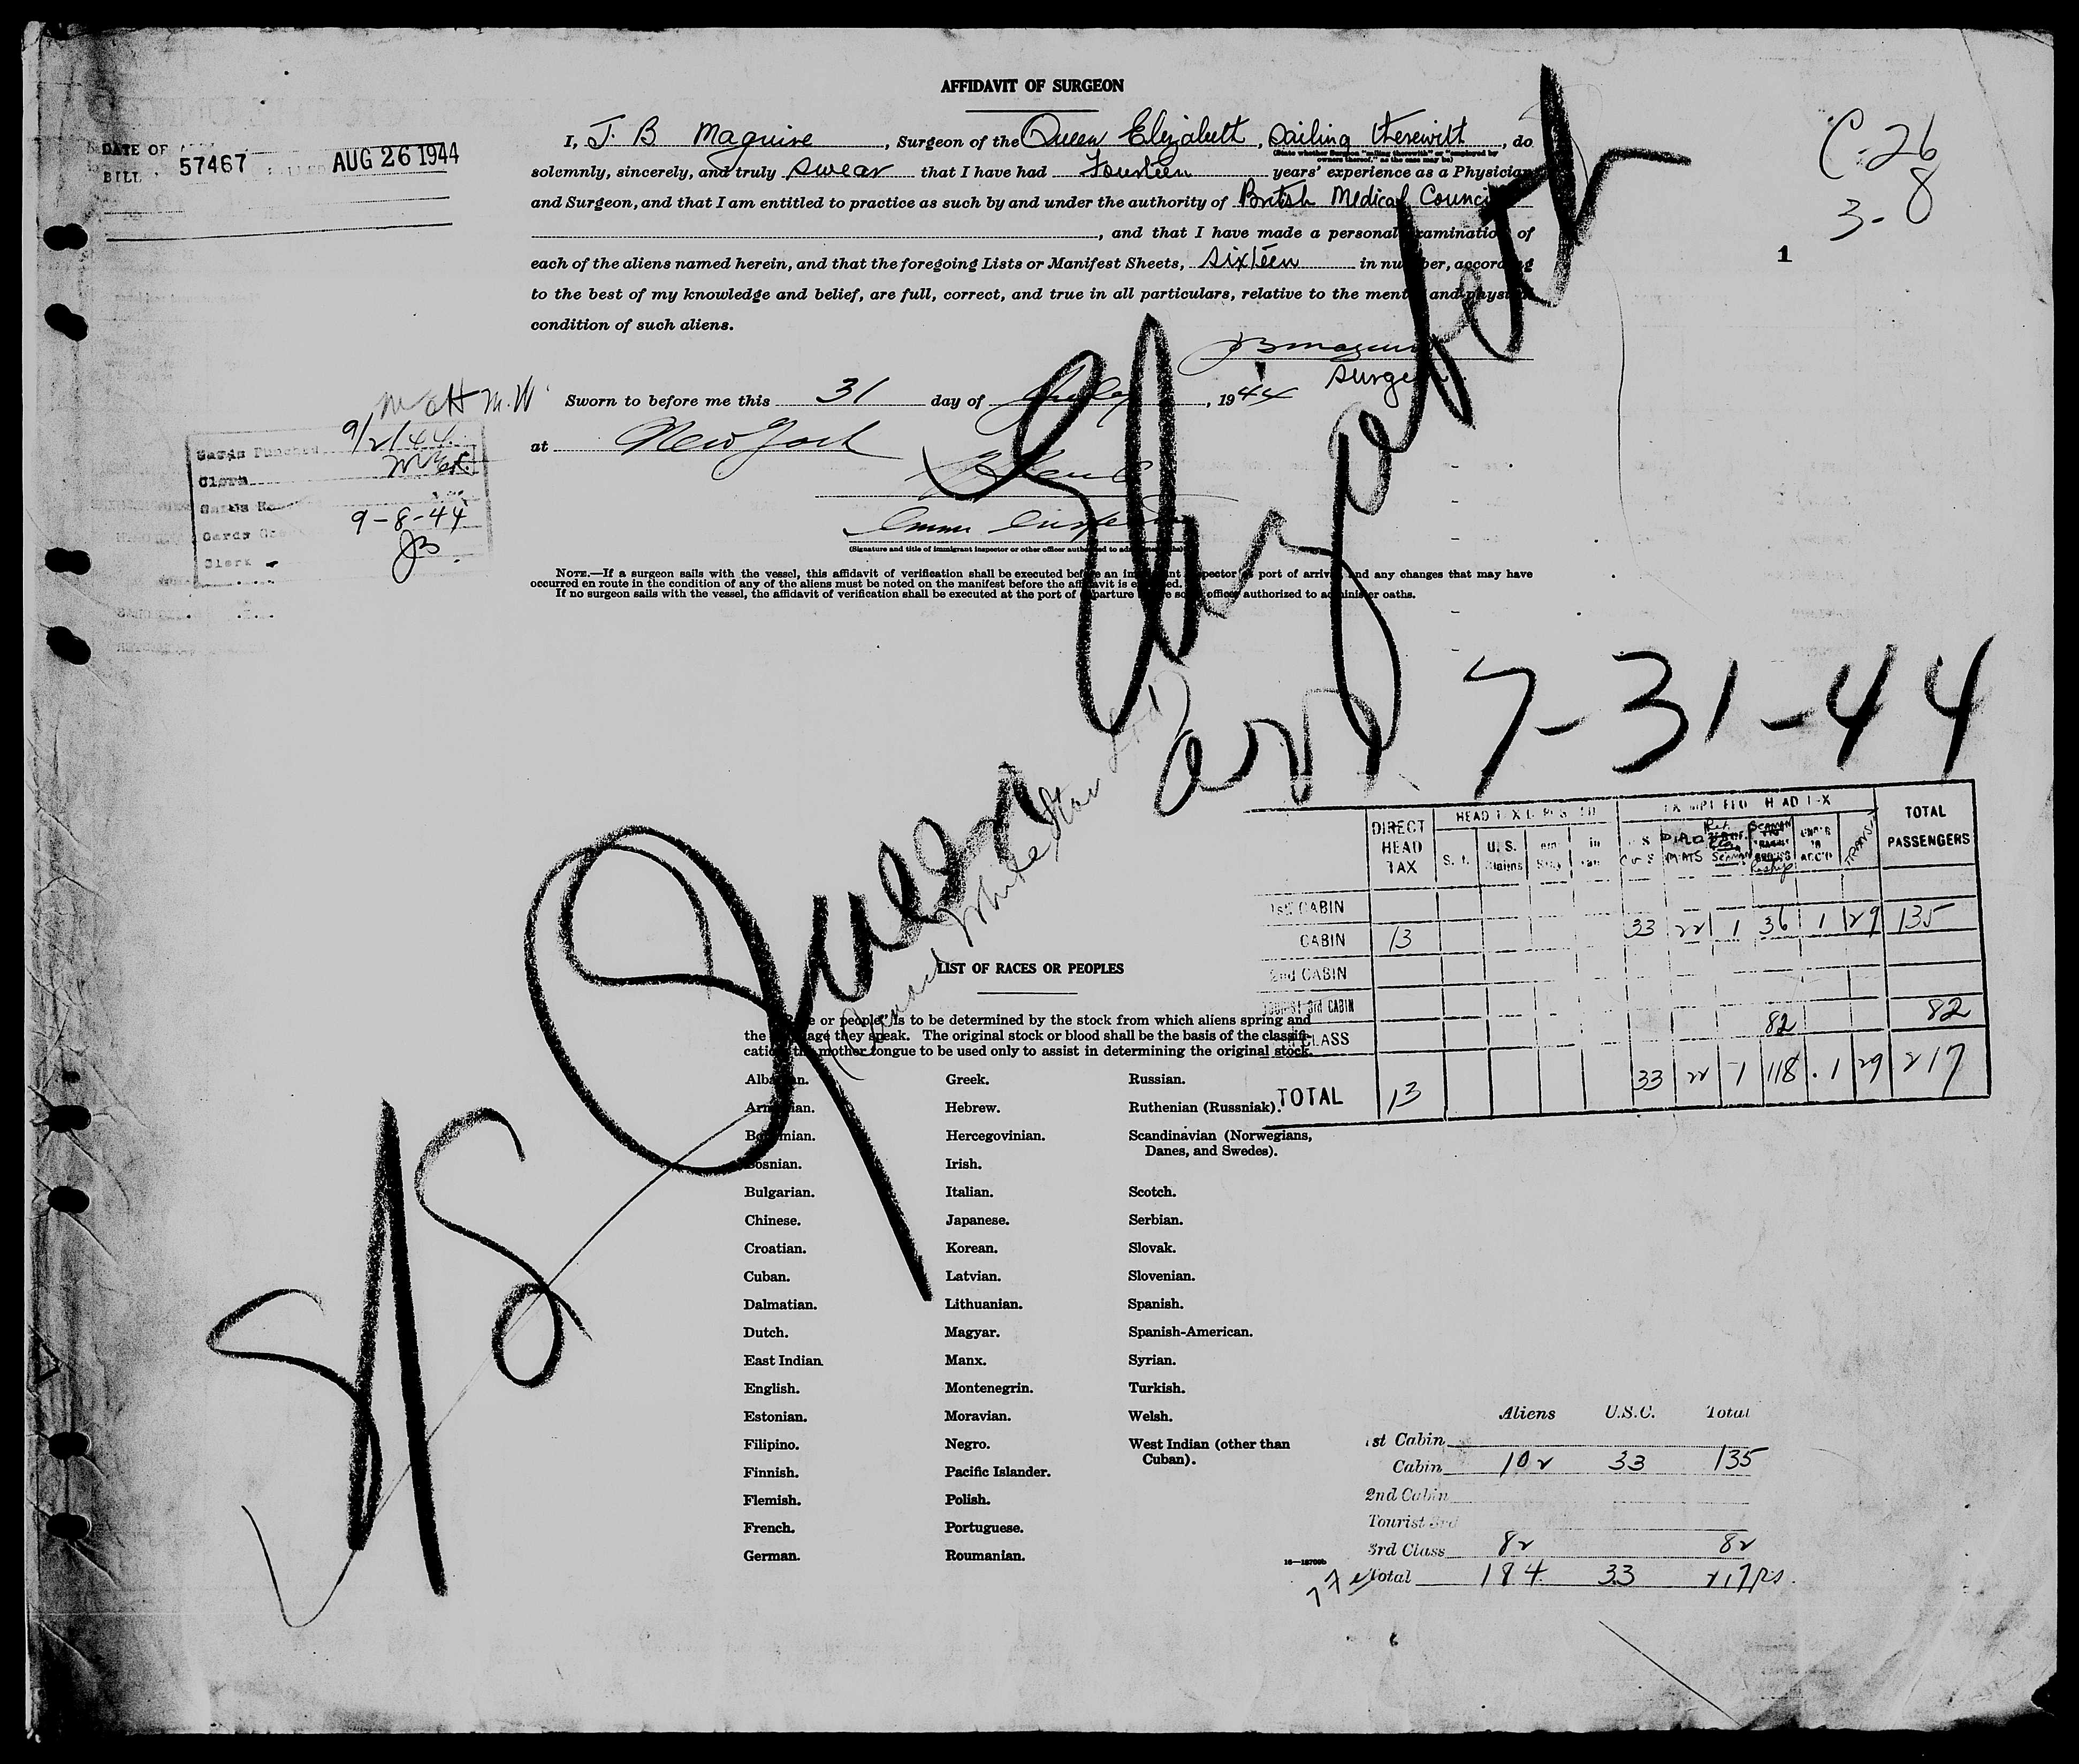 AFFIDAVIT OF SURGEON
I, J. B Maguire, Surgeon of the Queen Elizabeth, Sailing therewith, do
(State whether Surgeon "sailing therewith" or "employed by owners thereof," as the case may be)
solemnly, sincerely, and truly swear that I have had Fourteen years' experience as a Physician
and Surgeon, and that I am entitled to practice as such by and under the authority of British Medical Council
, and that I have made a personal examination of
each of the aliens named herein, and that the foregoing Lists or Manifest Sheets, sixteen in number, according
to the best of my knowledge and belief, are full, correct, and true in all particulars, relative to the mental and physical
condition of such aliens.
JB Maguire
Surgeon
Sworn to before me this 31 day of July, 1944
at New York
(Signature and title of immigrant inspector or other officer authorized to administer oaths)
NOTE.—If a surgeon sails with the vessel, this affidavit of verification shall be executed before an immigrant inspector at port of arrival and any changes that may have
occurred en route in the condition of any of the aliens must be noted on the manifest before the affidavit is executed.
If no surgeon sails with the vessel, the affidavit of verification shall be executed at the port of departure before some officer authorized to administer oaths.
DATE OF
BILL 57467 AUG 26 1944
C-26
3-8
1
9/2/44
Clerk
9-8-44
JB
Clerk
S/S Queen Elizabeth
arr 7-31-44
(Cunard White Star Ltd)
DIRECT HEAD TAX
U.S. Claims
TOTAL PASSENGERS
1st CABIN
CABIN 13 33 22 1 36 1 29 135
2nd CABIN
3rd CABIN
CLASS 82 82
TOTAL 13 33 22 1 118 1 29 217
LIST OF RACES OR PEOPLES
"Race or people" is to be determined by the stock from which aliens spring and
the language they speak. The original stock or blood shall be the basis of the classifi-
cation, the mother tongue to be used only to assist in determining the original stock.
Albanian. Greek. Russian.
Armenian. Hebrew. Ruthenian (Russniak).
Bohemian. Hercegovinian. Scandinavian (Norwegians,
Danes, and Swedes).
Bosnian. Irish.
Bulgarian. Italian. Scotch.
Chinese. Japanese. Serbian.
Croatian. Korean. Slovak.
Cuban. Latvian. Slovenian.
Dalmatian. Lithuanian. Spanish.
Dutch. Magyar. Spanish-American.
East Indian Manx. Syrian.
English. Montenegrin. Turkish.
Estonian. Moravian. Welsh.
Filipino. Negro. West Indian (other than
Cuban).
Finnish. Pacific Islander.
Flemish. Polish.
French. Portuguese.
German. Roumanian.
Aliens U.S.C. Total
1st Cabin
Cabin 102 33 135
2nd Cabin
Tourist 3rd
3rd Class 82 82
Total 184 33 217